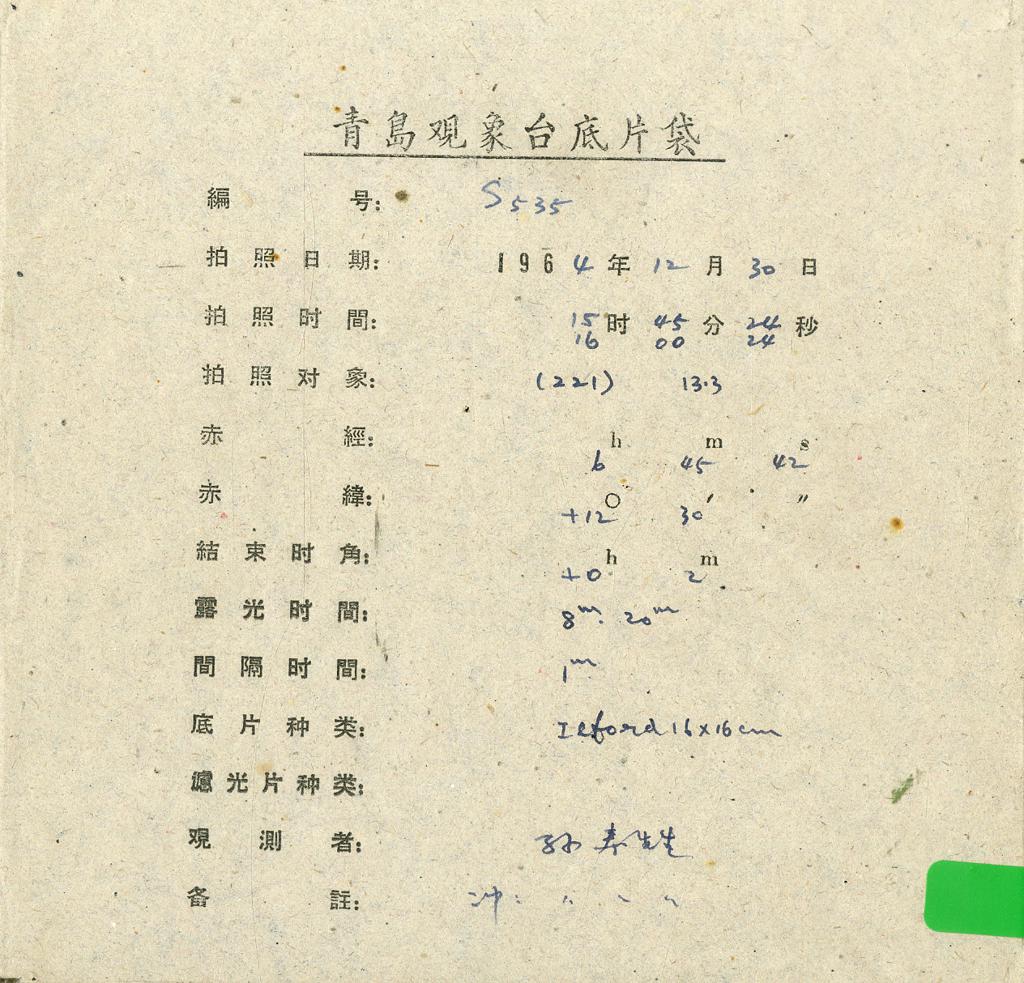 青島观象台底片袋
編号: S535
拍照日期: 1964年12月30日
拍照时間: 15时45分24秒
16 00 24
拍照对象: (221) 13.3
赤經: 6h 45m 42s
赤緯: +12° 30′ ″
結束时角: +0h 2m
露光时間: 8m. 20m
間隔时間: 1m
底片种类: Ilford 16x16cm
濾光片种类:
观測者: 孙寿
备註: 冲: 〃 〃 〃